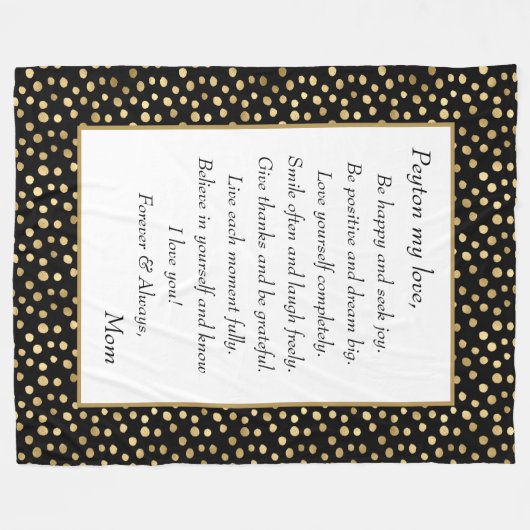 Peyton my love,
Be happy and seek joy.
Be positive and dream big.
Love yourself completely.
Smile often and laugh freely.
Give thanks and be grateful.
Live each moment fully.
Believe in yourself and know
I love you!
Forever & Always,
Mom